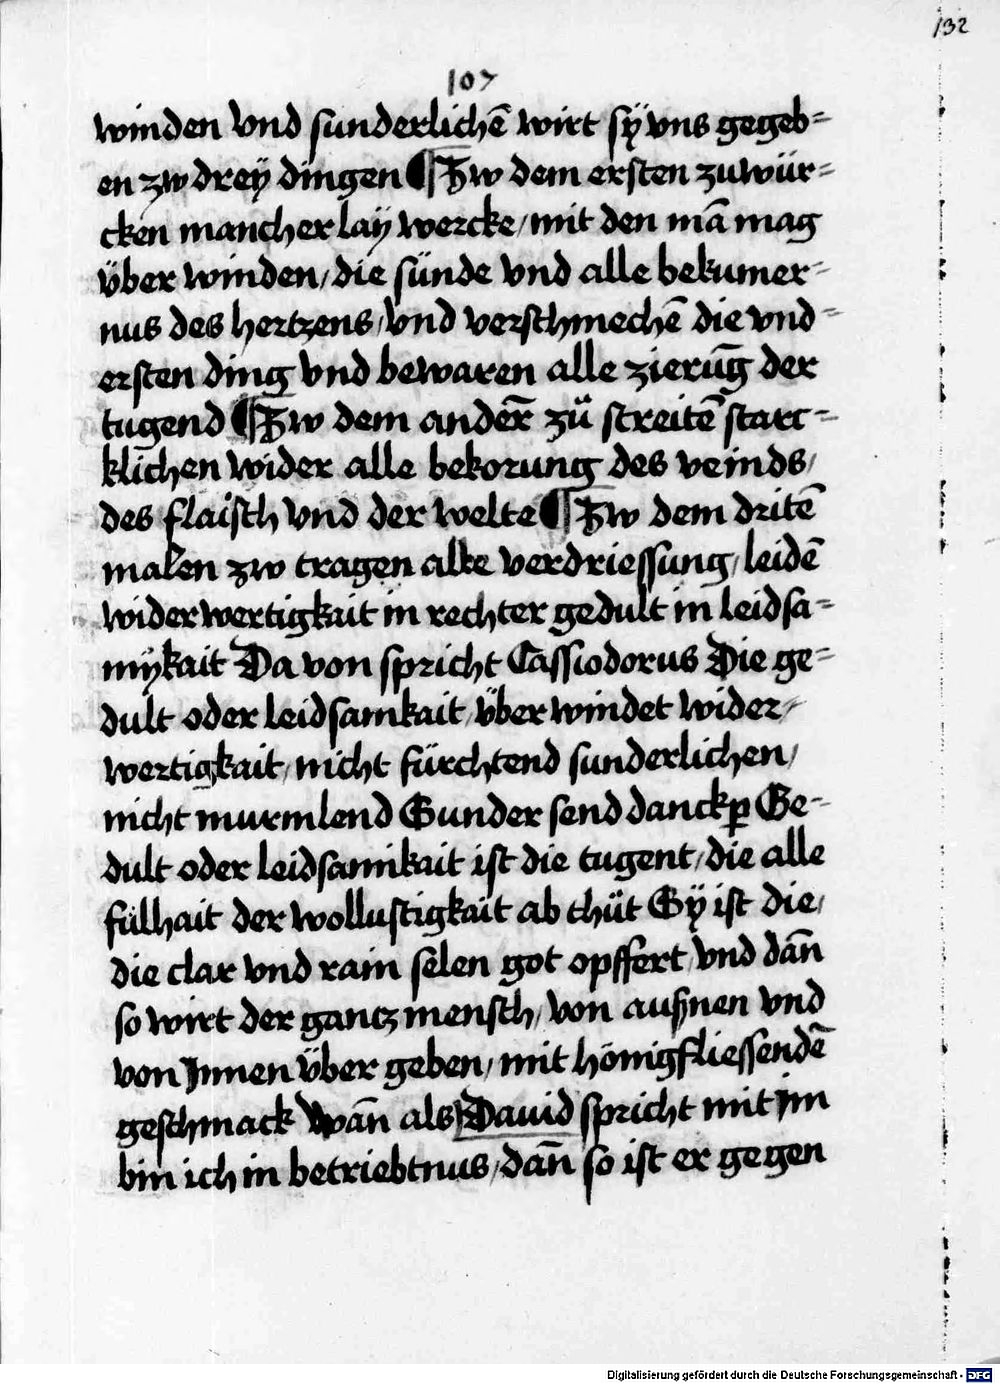 132
107
winden vnd sunderlichē wirt sÿ vns gegeb=
en zw dreÿ dingen ¶ Zw dem ersten zuwür=
cken mancherlaÿ wercke / mit den mā mag
über winden / die sünde vnd alle bekumer=
nus des hertzens / vnd verschmechē die vnd=
ersten ding vnd bewaren alle zierūg der
tugend ¶ Zw dem ander̄ zü streitē starc=
klichen wider alle bekorung des veinds /
des flaisch vnd der welte ¶ Zw dem dritē
malen zw tragen alle verdriessung / leidē
widerwertigkait in rechter gedult in leidsa=
mÿkait Da von spricht Cassiodorus Die ge=
dult oder leidsamkait / über windet wider /
wertigkait / nicht fürchtend sunderlichen /
nicht murmlend Sunder send danckp Ge=
dult oder leidsamikait ist die tugent / die alle
fülhait der wollustigkait ab thüt Sÿ ist die /
die clar vnd rain selen got opffert / vnd dān
so wirt der gantz mensch / von aussnen vnd
von Jnnen über geben / mit hönigfliessendē
geschmack Wān als Dauid spricht mit jm
bin ich in betriebtnus / dān so ist er gegen
Digitalisierung gefördert durch die Deutsche Forschungsgemeinschaft - DFG